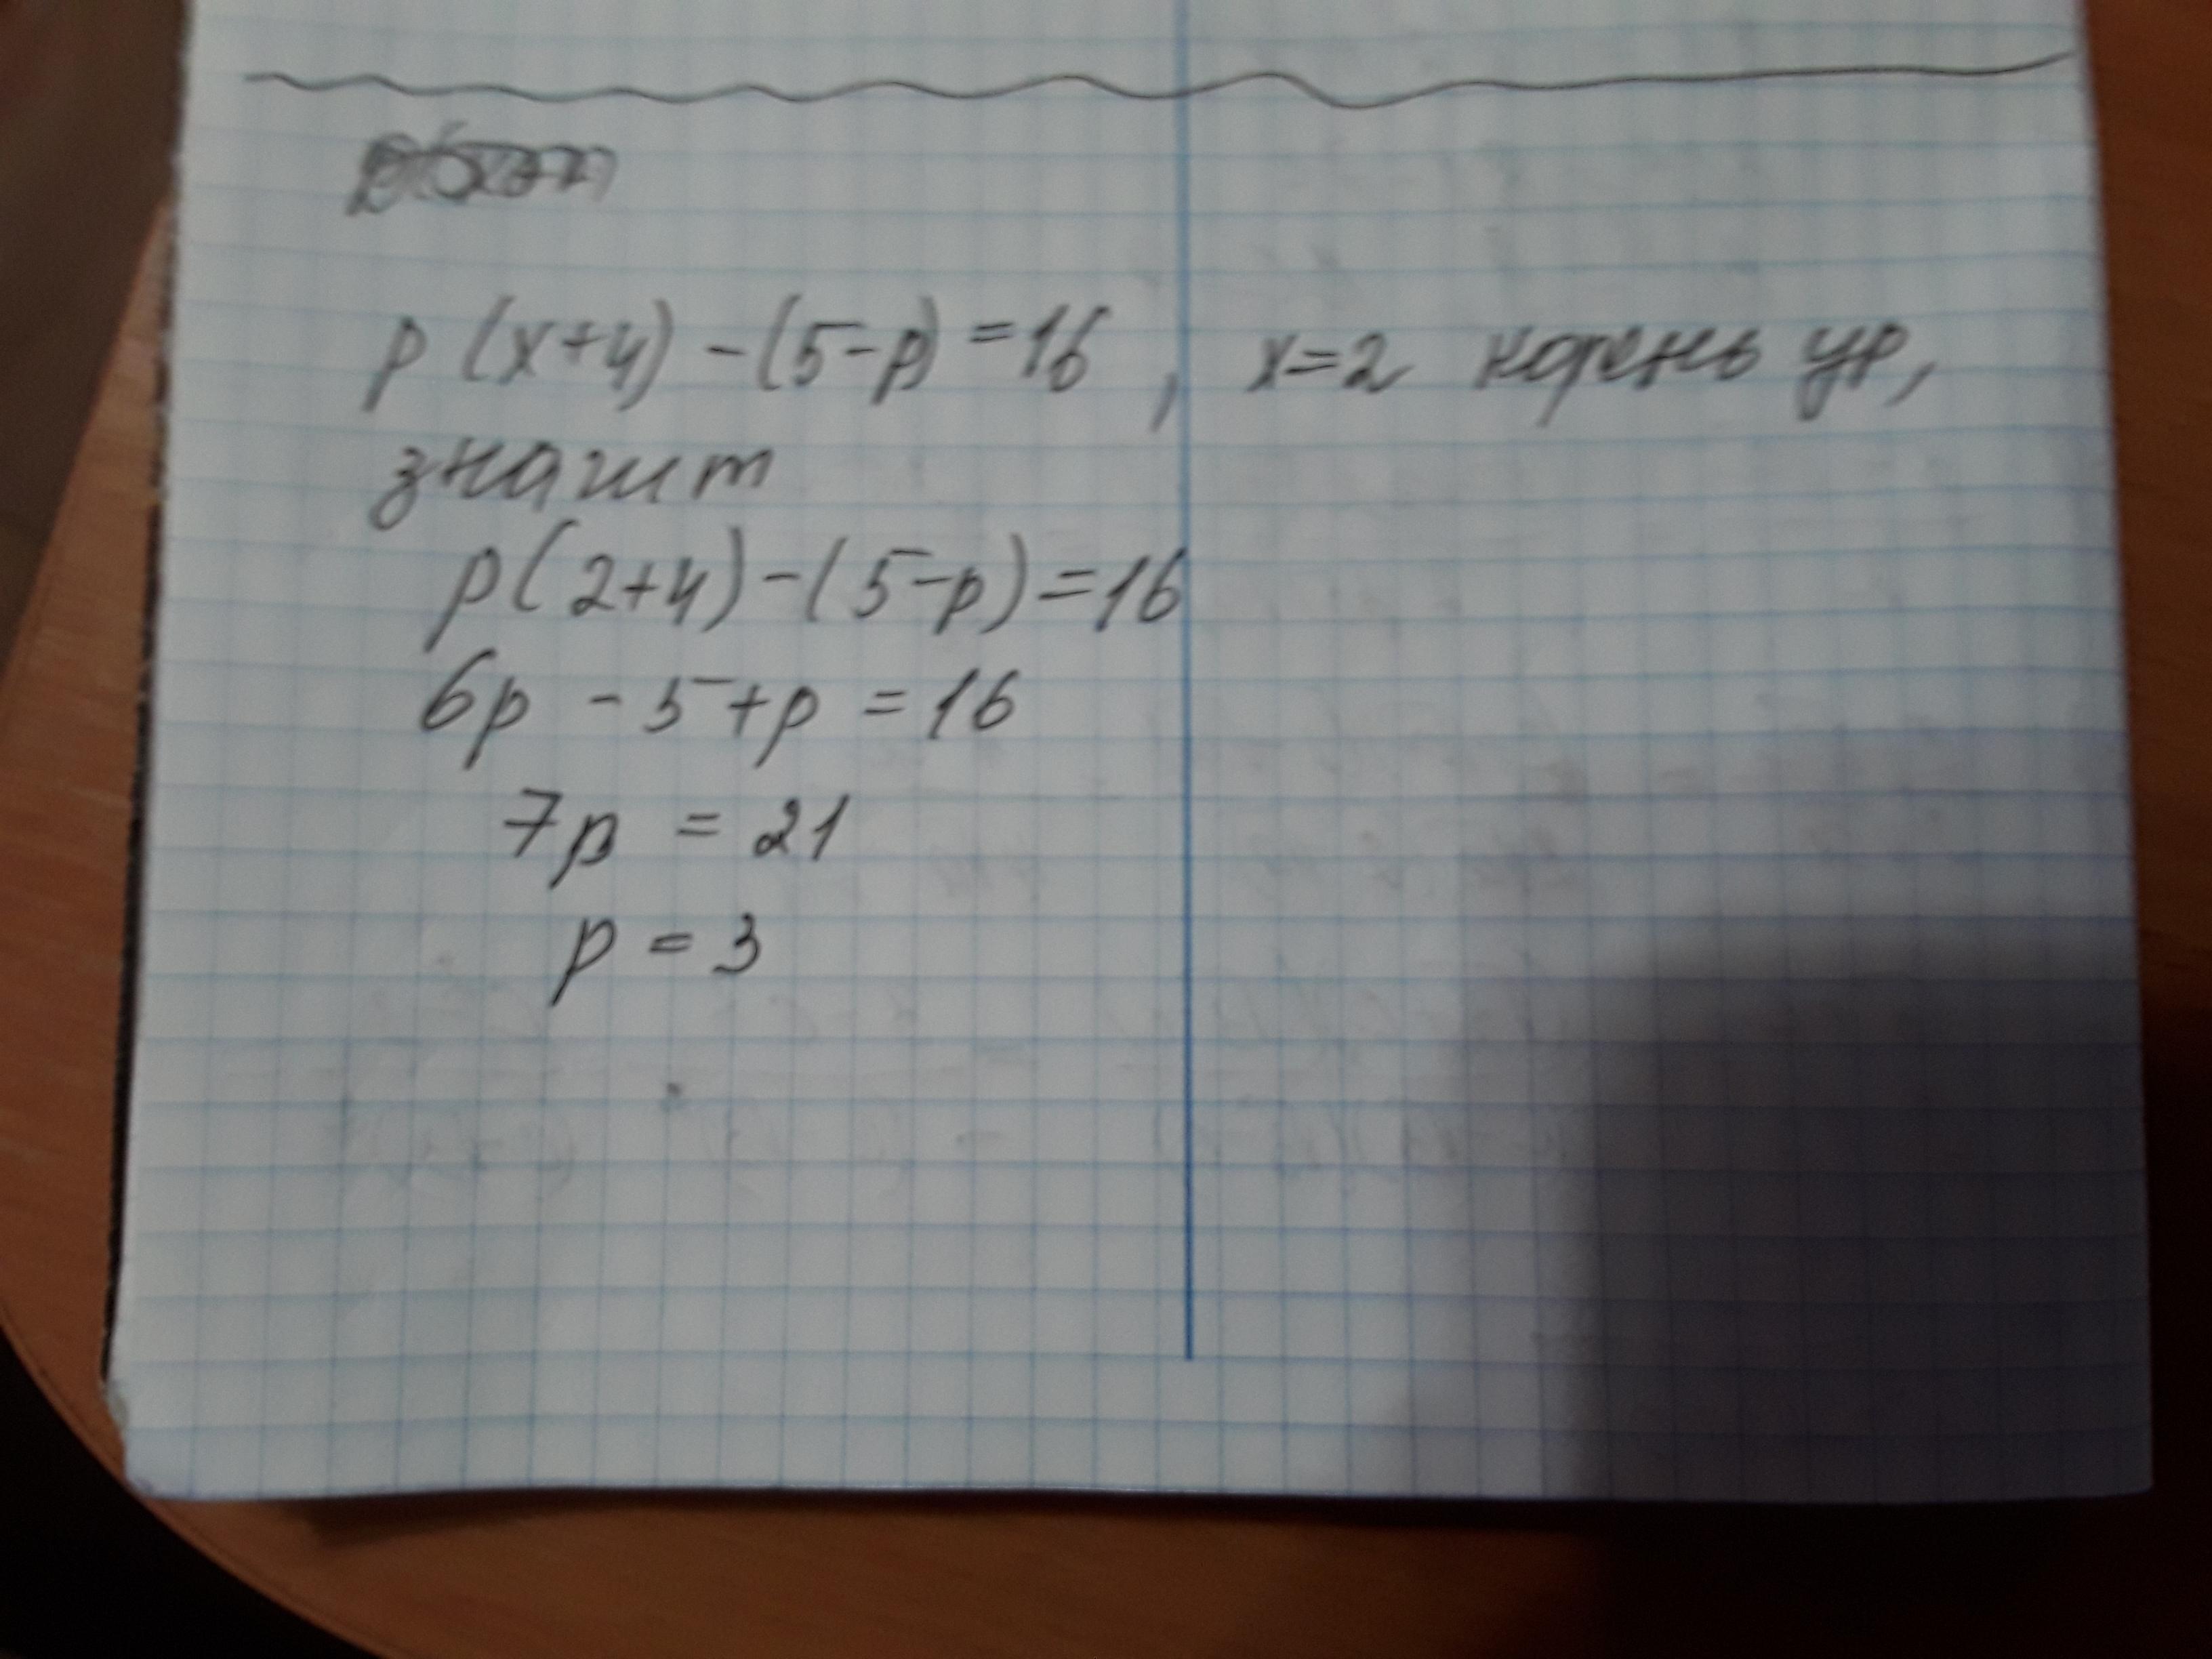 p(x+4)-(5-p)=16, x=2 корень ур,
значит
p(2+4)-(5-p)=16
6p-5+p=16
7p=21
p=3